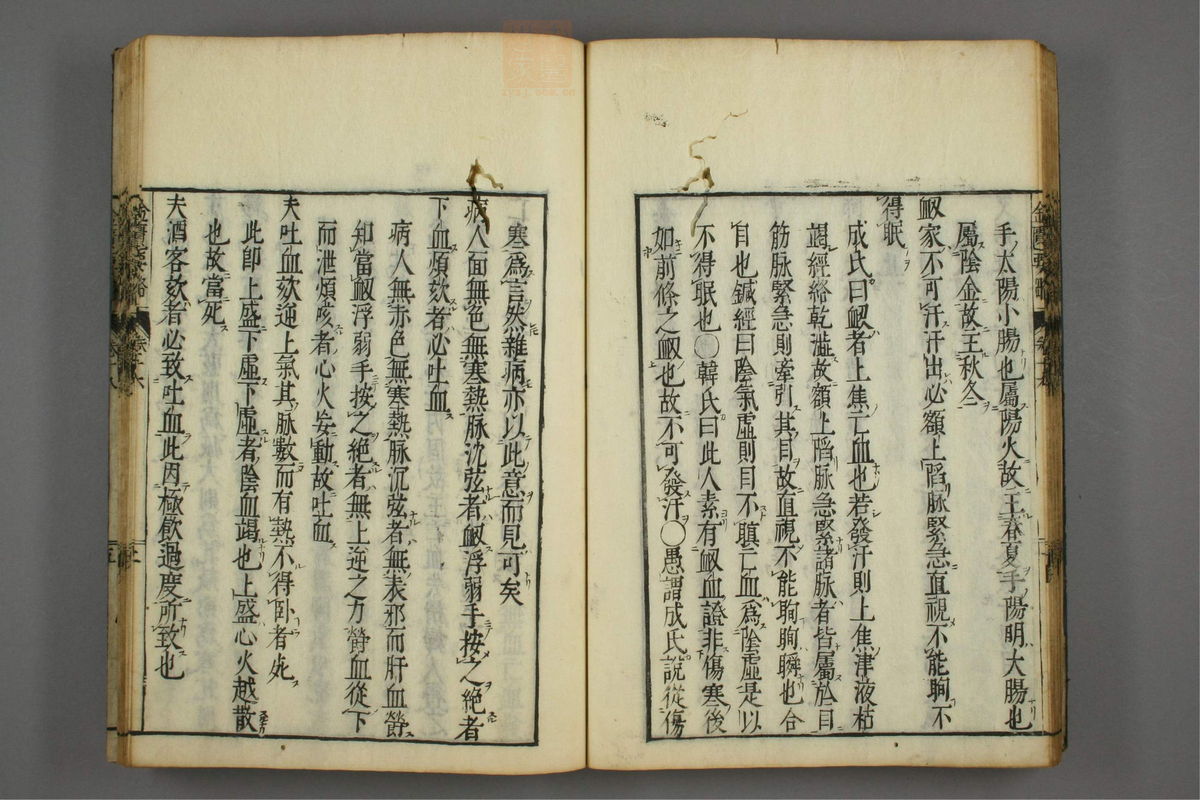 手太陽小腸也屬陽火故王春夏手陽明大腸也
屬陰金故王秋冬
衂家不可汗汗出必額上䧟脉緊急直視不能眴不
得眠
成氏曰衂者上焦亡血也若發汗則上焦津液枯
竭經絡乾澁故額上䧟脉急緊諸脉者皆屬於目
筋脉緊急則牽引其目故直視不能眴眴瞬也合
目也鍼經曰陰氣虛則目不瞑亡血為陰虛是以
不得眠也○韓氏曰此人素有衂血證非傷寒後
如前條之衂也故不可發汗○愚謂成氏說從傷
寒為言然雜病亦以此意而見可矣
病人面無色無寒熱脉沈弦者衂浮弱手按之絶者
下血煩欬者必吐血
病人無赤色無寒熱脉沉弦者無表邪而肝血勞
知當衂浮弱手按之絶者無上逆之力勞血從下
而泄煩咳者心火妄動故吐血
夫吐血欬逆上氣其脉數而有熱不得卧者死
此卽上盛下虛下虛者陰血竭也上盛心火越散
也故當死
夫酒客欬者必致吐血此因極飲過度所致也